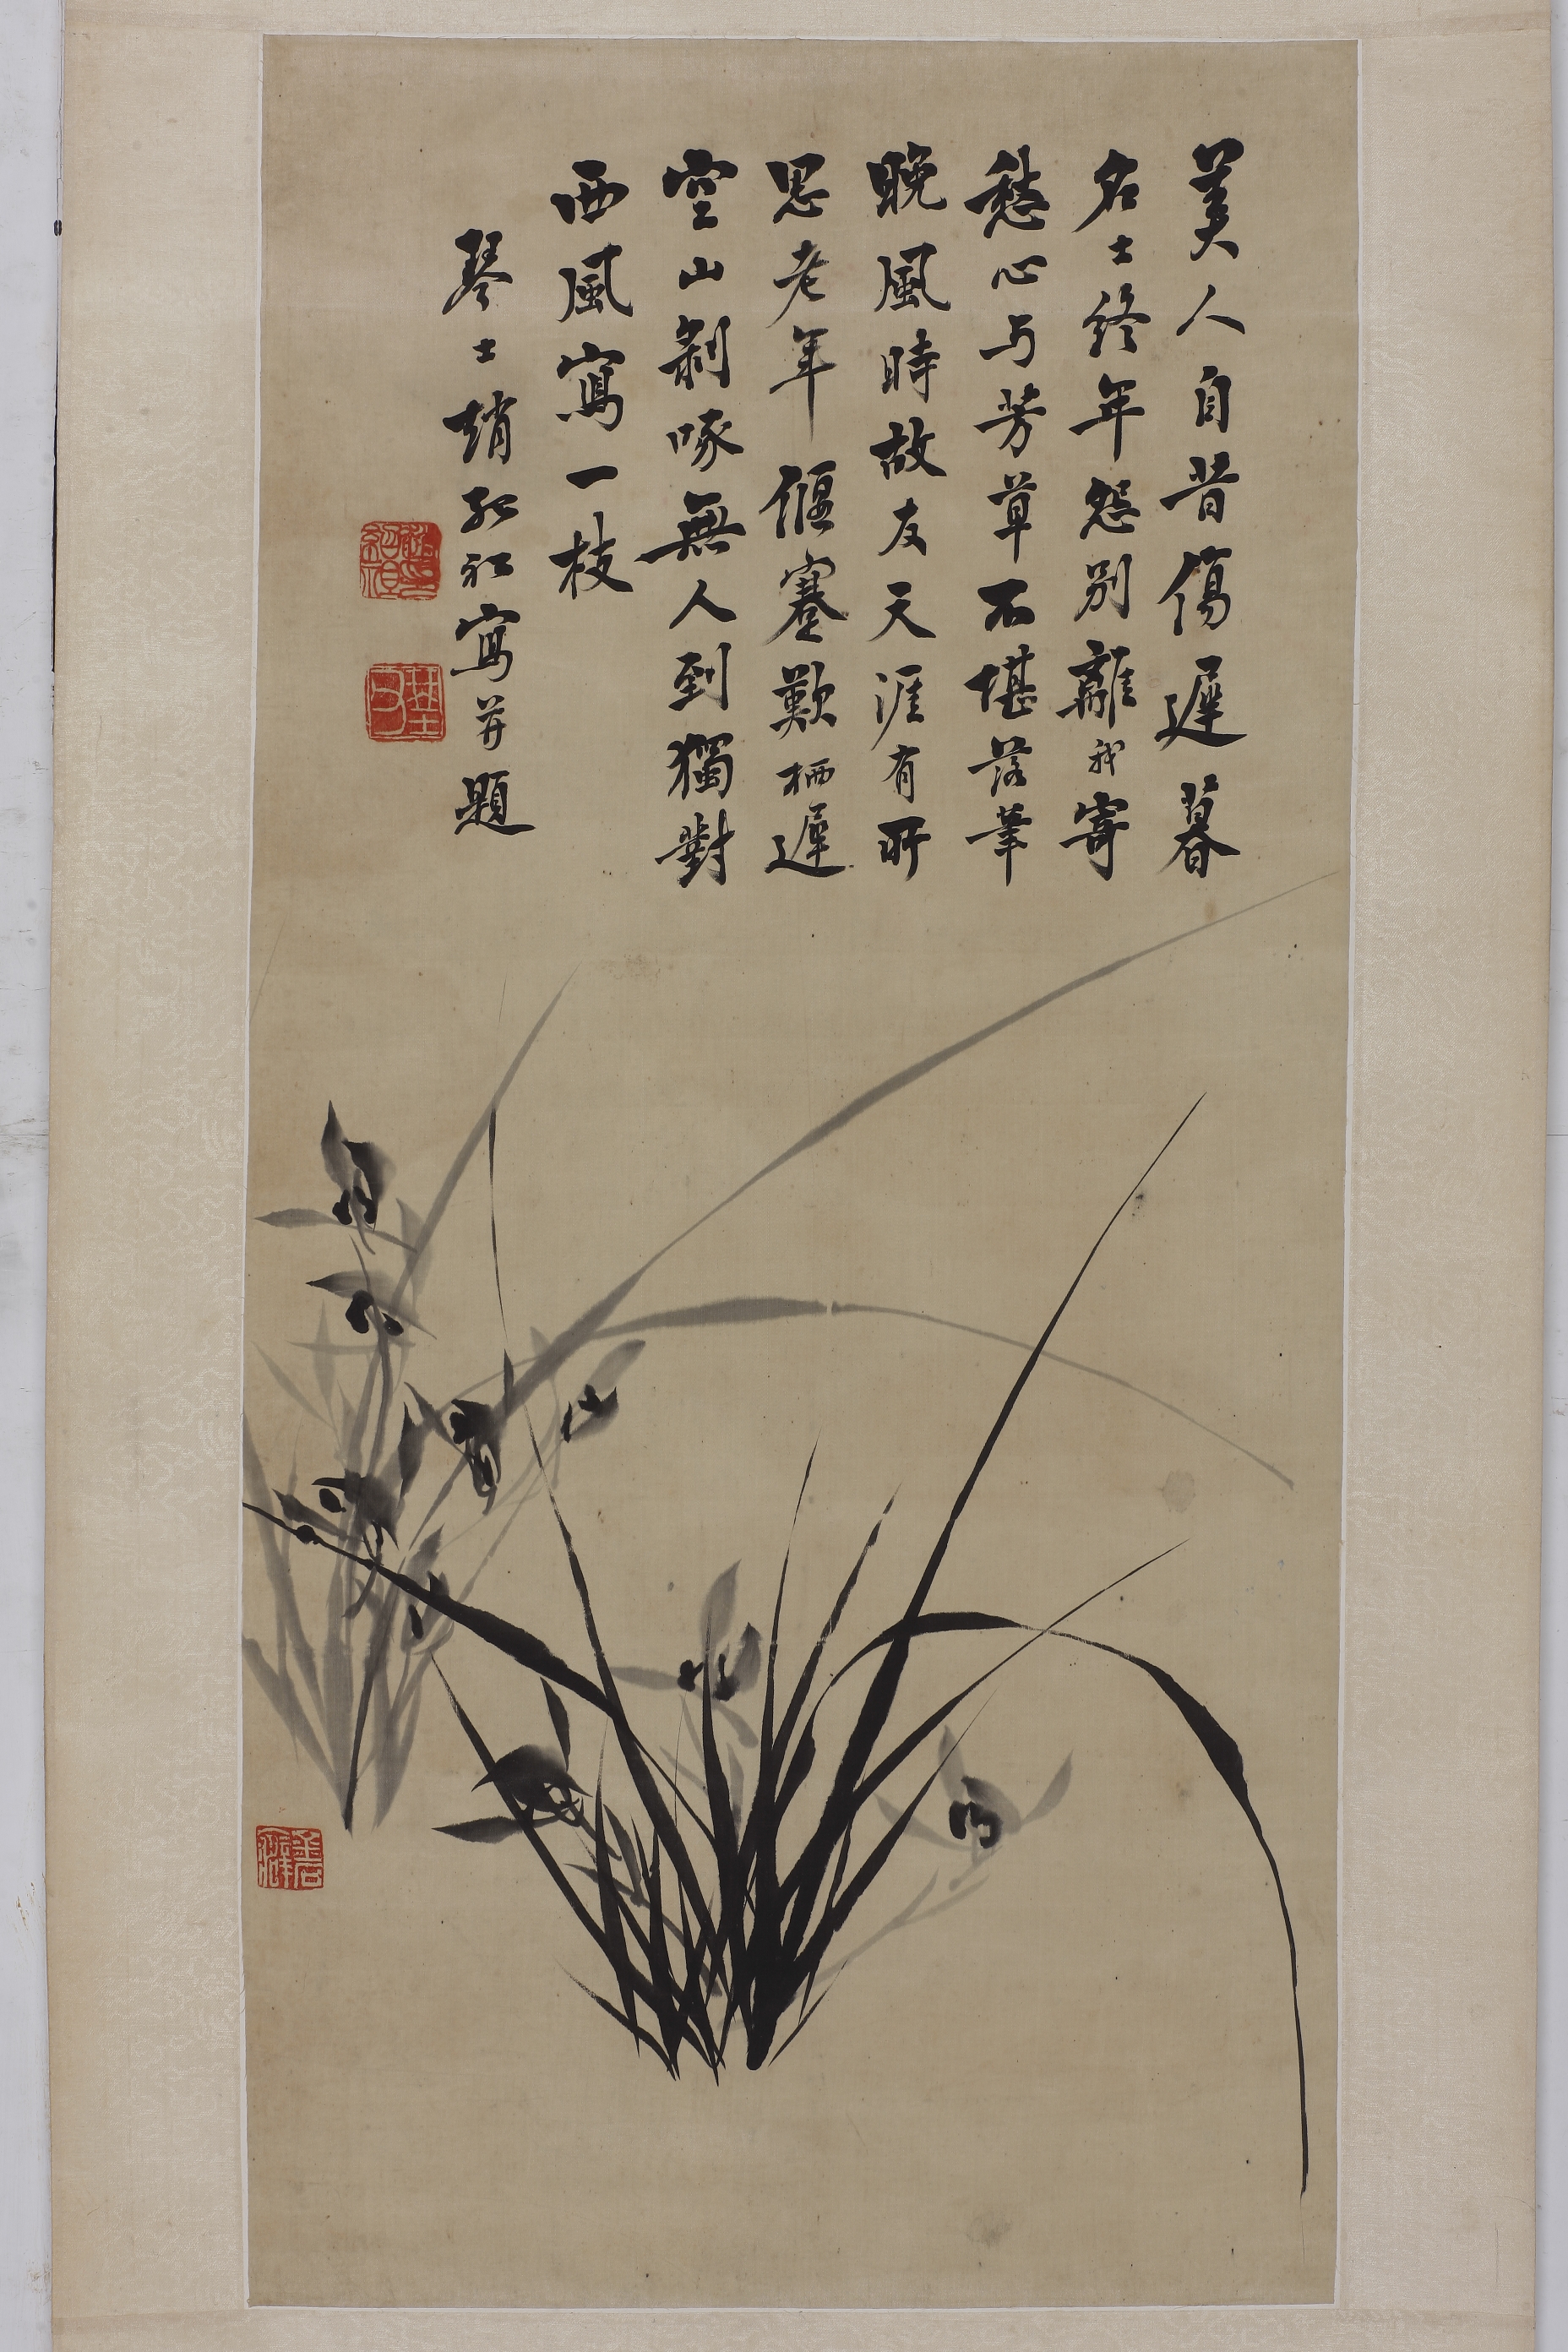 美人自昔傷遲暮
名士終年怨別離我寄
愁心与芳草不堪落筆
晚風時故友天涯有所
思老年偃蹇歎栖遲
空山剝啄無人到獨對
西風寫一枝
琴士趙紹祖寫并題
趙印紹祖
琴士